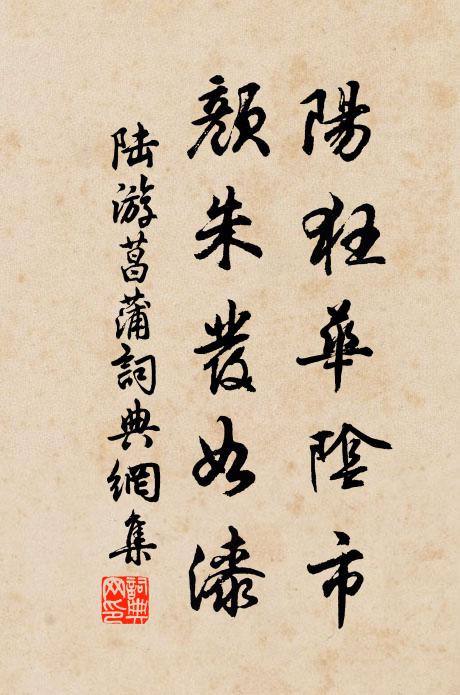 陽狂華陰市
顏朱發如漆
陸游菖蒲詞典網集
詞典網印